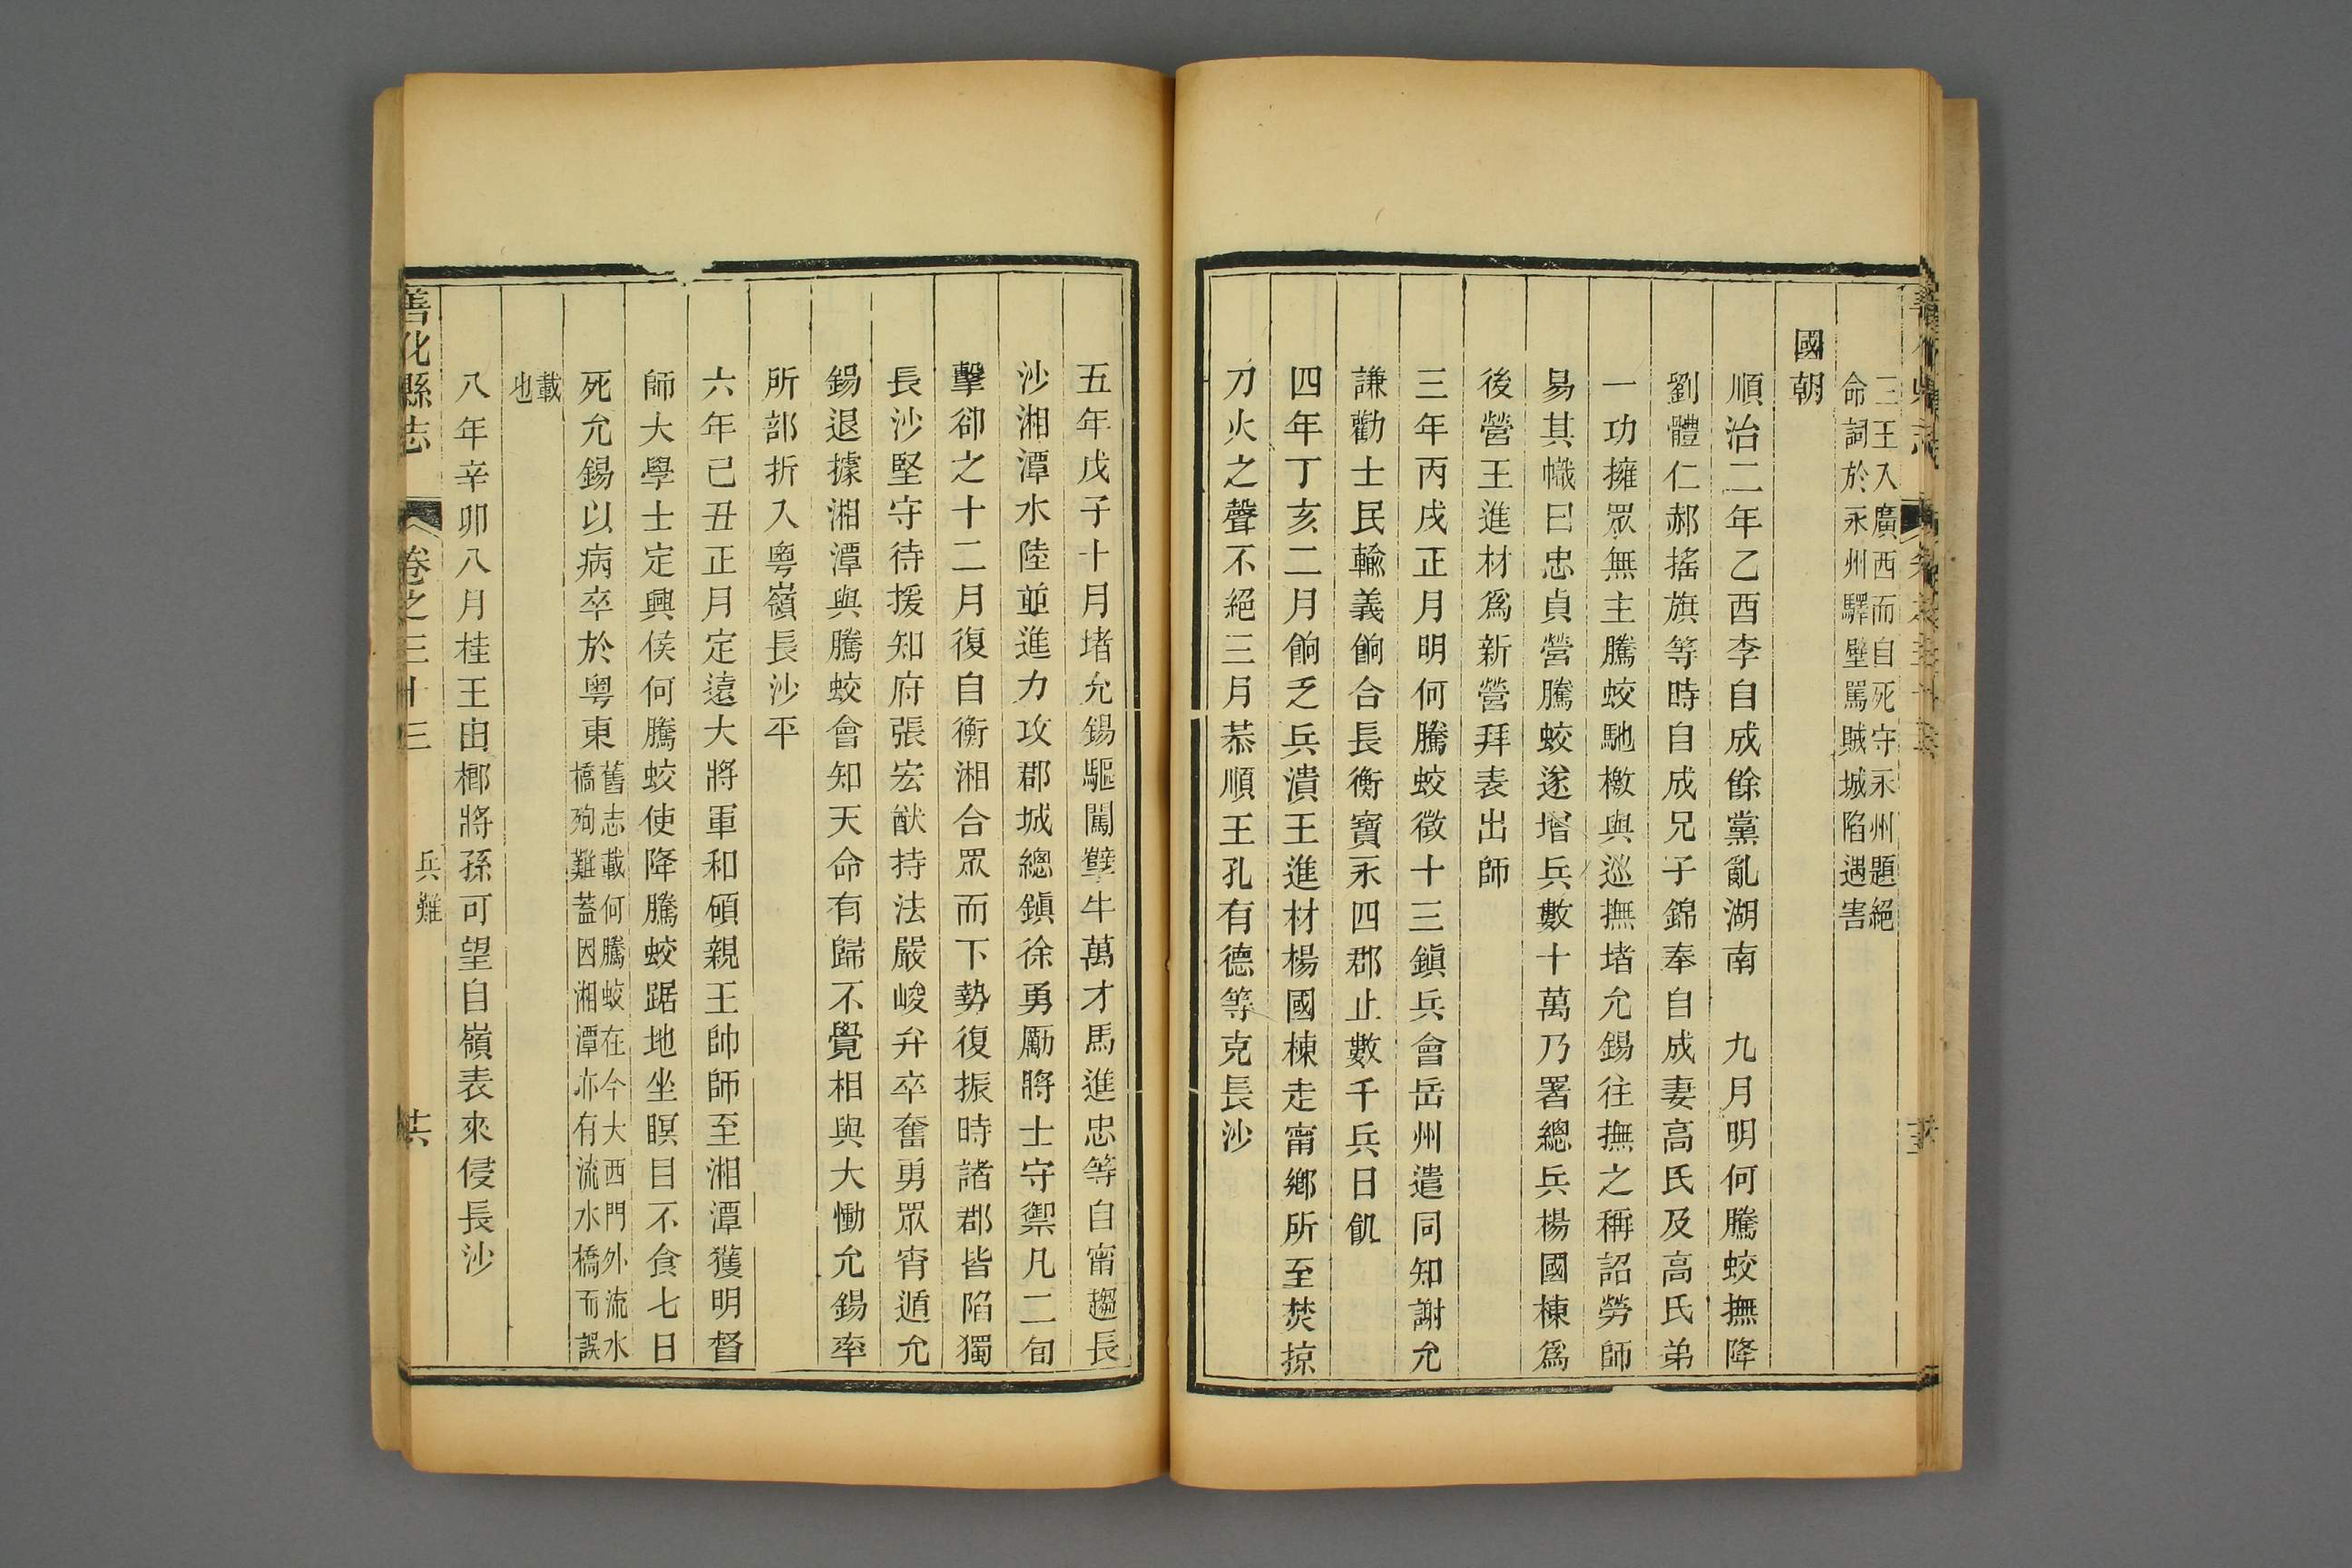 三王入廣西而自死守永州題絕
命詞於永州驛壁罵賊城陷遇害
國朝
順治二年乙酉李自成餘黨亂湖南　九月明何騰蛟撫降
劉體仁郝搖旗等時自成兄子錦奉自成妻高氏及高氏弟
一功擁眾無主騰蛟馳檄與巡撫堵允錫往撫之稱詔勞師
易其幟曰忠貞營騰蛟遂增兵數十萬乃署總兵楊國棟爲
後營王進材爲新營拜表出師
三年丙戌正月明何騰蛟徵十三鎭兵會岳州遣同知謝允
謙勸士民輸義餉合長衡寶永四郡止數千兵日飢
四年丁亥二月餉乏兵潰王進材楊國棟走甯鄉所至焚掠
刀火之聲不絕三月恭順王孔有德等克長沙
五年戊子十月堵允錫驅闖孽牛萬才馬進忠等自甯趨長
沙湘潭水陸並進力攻郡城總鎭徐勇勵將士守禦凡二旬
擊卻之十二月復自衡湘合眾而下勢復振時諸郡皆陷獨
長沙堅守待援知府張宏猷持法嚴峻弁卒奮勇眾宵遁允
錫退據湘潭與騰蛟會知天命有歸不覺相與大慟允錫率
所部折入粵嶺長沙平
六年己丑正月定遠大將軍和碩親王帥師至湘潭獲明督
師大學士定興侯何騰蛟使降騰蛟踞地坐瞑目不食七日
死允錫以病卒於粵東
舊志載何騰蛟在今大西門外流水
橋殉難蓋因湘潭亦有流水橋而誤
載
也
八年辛卯八月桂王由榔將孫可望自嶺表來侵長沙
善化縣志
卷之三十三
兵難
共